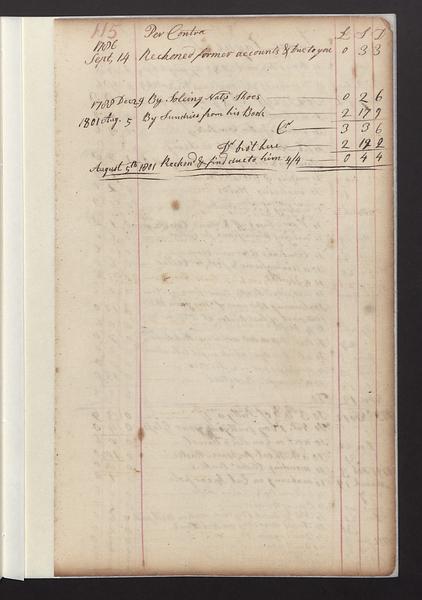 115 Per Contra £ S D
1796
Sept, 14 Reckoned former accounts & due to you 0 3 3
Decr 9 By Soleing Nat's Shoes 0 2 6
1801 Aug. 5 By Sundries from his Book 2 17 9
Cr 3 3 6
Dr bro't here 2 19 2
August 5th 1801 Reckon'd & find due to him 4/4 0 4 4